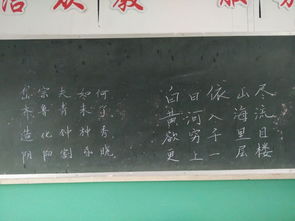 岱宗夫如何
齐鲁青未了
造化钟神秀
阴阳割昏晓
白日依山尽
黄河入海流
欲穷千里目
更上一层楼